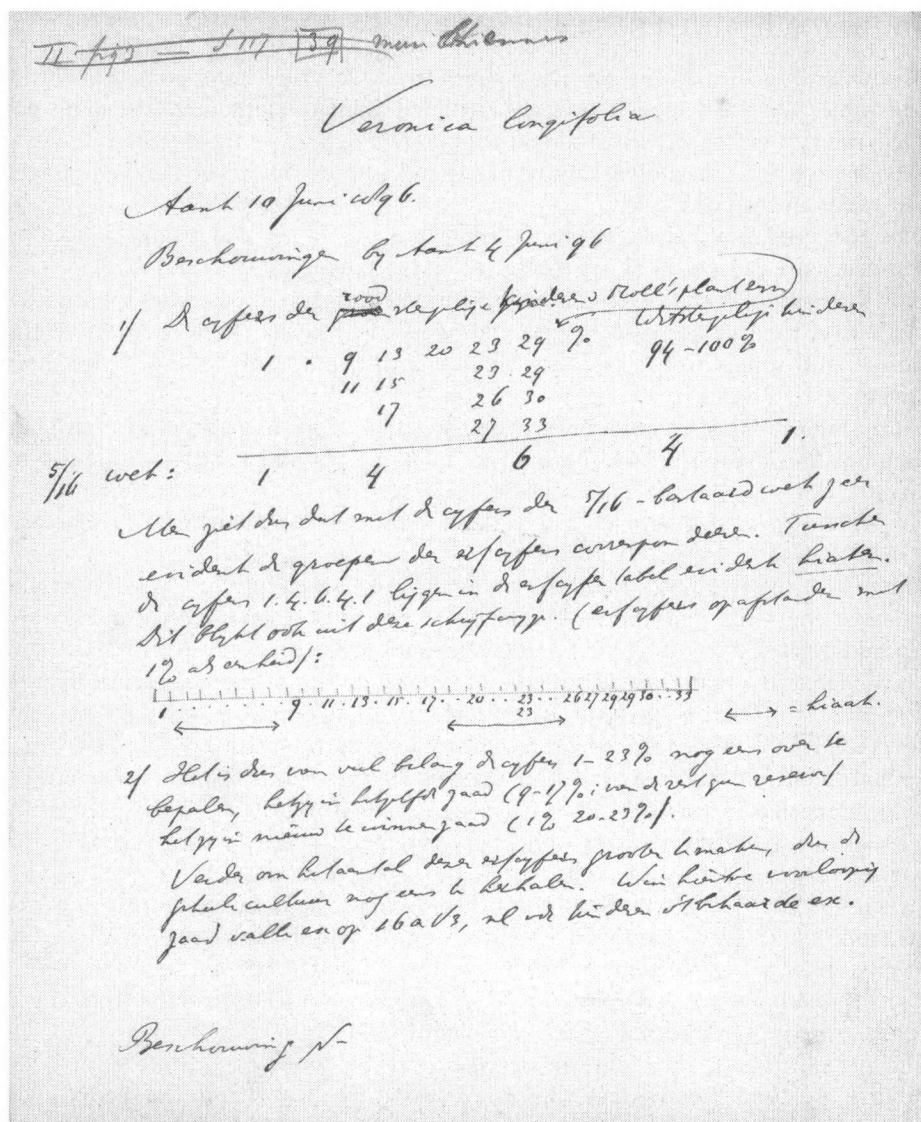 Veronica longifolia
Aant 10 Juni 1896.
Beschouwingen by Aant 4 Juni 96
1/ De cyfers der rood stengelige kinderen Moll's planten
Witstengelige kinderen
1 . 9 13 20 23 29 % 94-100%
11 15 23 . 29
17 26 30
27 33
5/16 wet: 1 4 6 4 1.
Men ziet dus dat met de cyfers der 5/16-bastaardwet zeer
evident de groepen der erfcyfers correspondeeren. Tusschen
de cyfers 1.4.6.4.1 liggen in de erfcyfer tabel evidente hiaten.
Dit blykt ook uit deze (erfcyfers op afstanden met
1% als eenheid):
1 . . . . . . . 9 . 11 . 13 . 15 . 17 . . 20 . . 23 . . 26 27 29 29 30 . . 33
23
= hiaat.
2/ Het is dus van veel belang de cyfers 1-23% nog eens over te
bepalen, hetzy in hetzelfde zaad (9-17%: van de rest geen reserve)
hetzy in nieuw te winnen zaad (1% 20-23%).
Verder om het aantal dezer erfcyfers grooter te maken, dus de
geheele cultuur nog eens te herhalen. Win hiertoe voorloopig
zaad van alle ex op kinderen behaarde ex.
Beschouwing